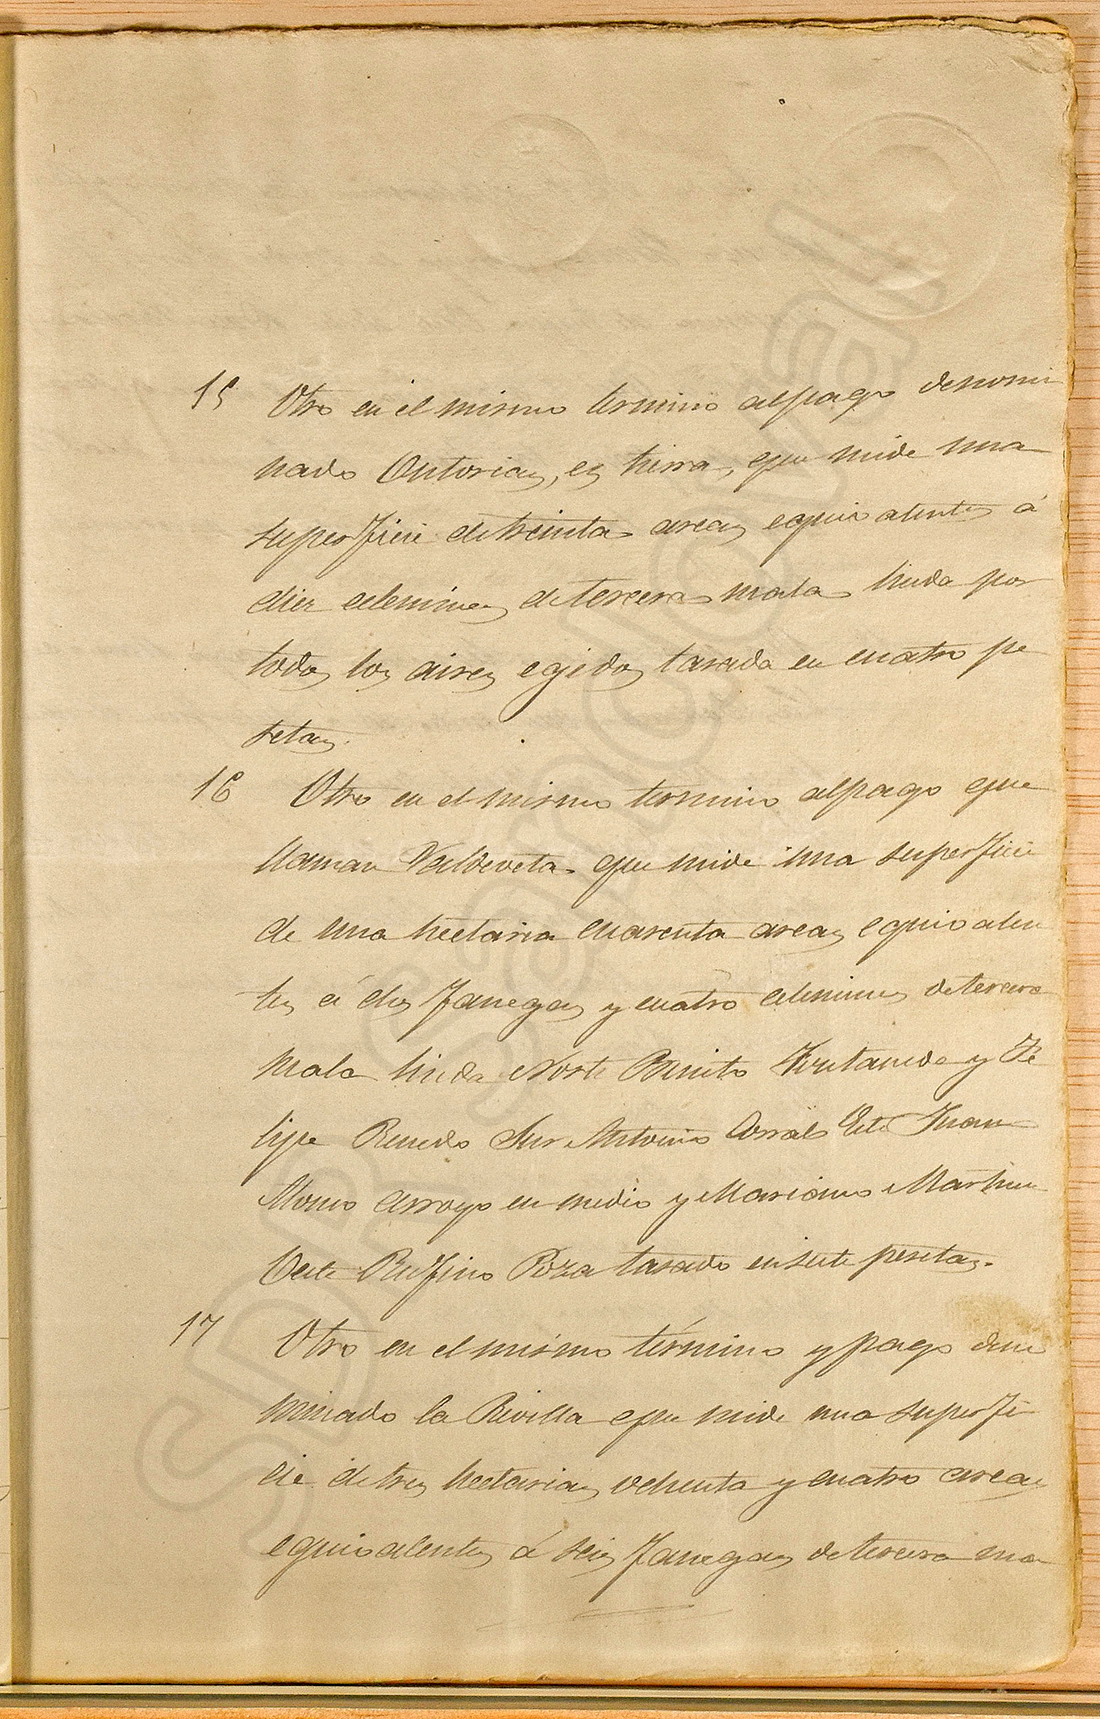 15 Otro en el mismo termino al pago denomi
nado Ontorias, es tierra, que mide una
superficie de treinta areas equivalentes á
diez celemines de tercera mala linda por
todos los aires egidos tasada en cuatro pe
setas.
16 Otro en el mismo termino al pago que
llaman Valdeveta que mide una superficie
de una hectaria cuarenta areas equivalen
tes á dos fanegas y cuatro celemines de tercera
mala linda Norte Benito Fontaneda y Fe
lipe Renedo Sur Antonio Corral Este Juan
Alonso arroyo en medio y Mariano Martinez
Oeste Rufino Poza tasado en siete pesetas.
17 Otro en el mismo término y pago deno
minado la Rivilla que mide una superfi
cie de tres hectarias ochenta y cuatro areas
equivalentes á seis fanegas de tercera ma